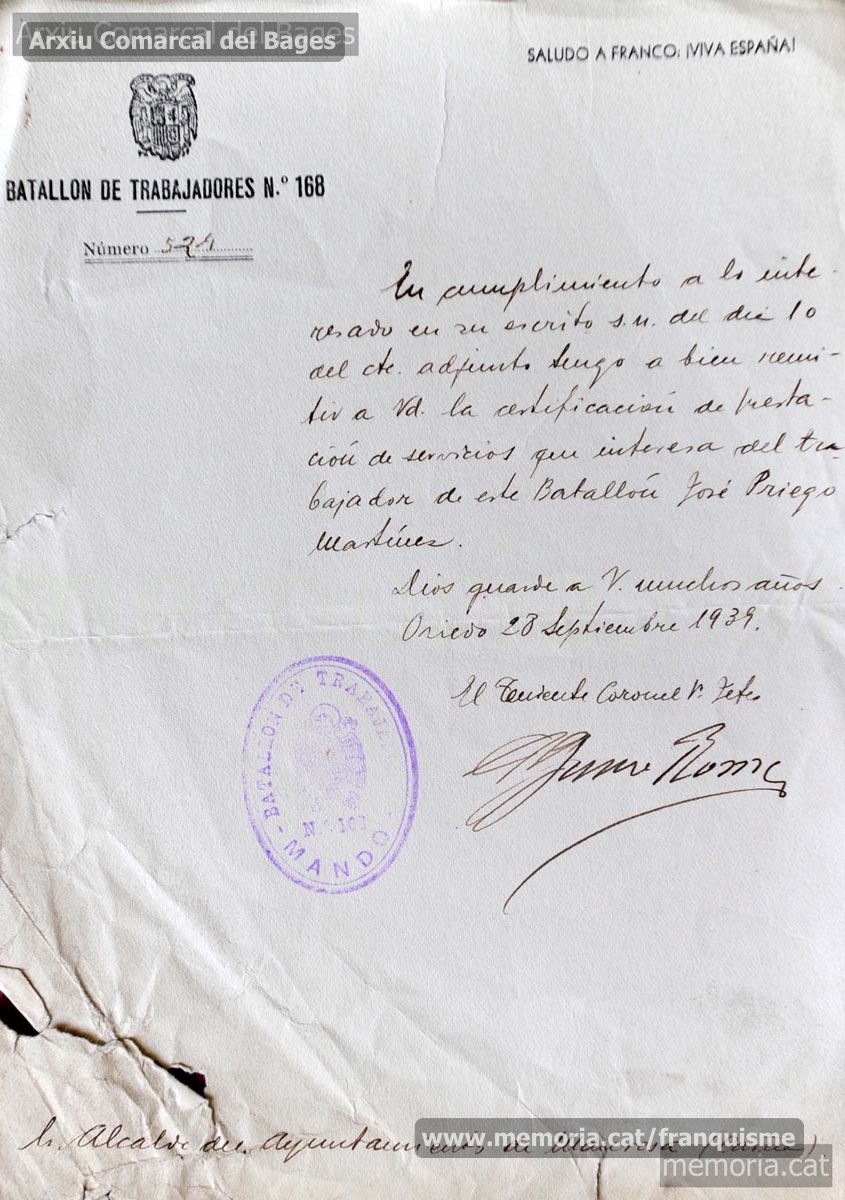 Arxiu Comarcal del Bages
SALUDO A FRANCO: ¡VIVA ESPAÑA!
BATALLON DE TRABAJADORES N.º 168
Número 524
En cumplimiento a lo inte-
resado en su escrito s.n. del día 10
del cte. adjunto tengo a bien remi-
tir a Vd. la certificación de presta-
ción de servicios que interesa del tra-
bajador de este Batallón José Priego
Martínez.
Dios guarde a V. muchos años.
Oviedo 28 Septiembre 1939.
El Teniente Coronel 1º Jefe
BATALLON DE TRABAJ.
MANDO
Sr. Alcalde del Ayuntamiento de Manresa
www.memoria.cat/franquisme
memoria.cat